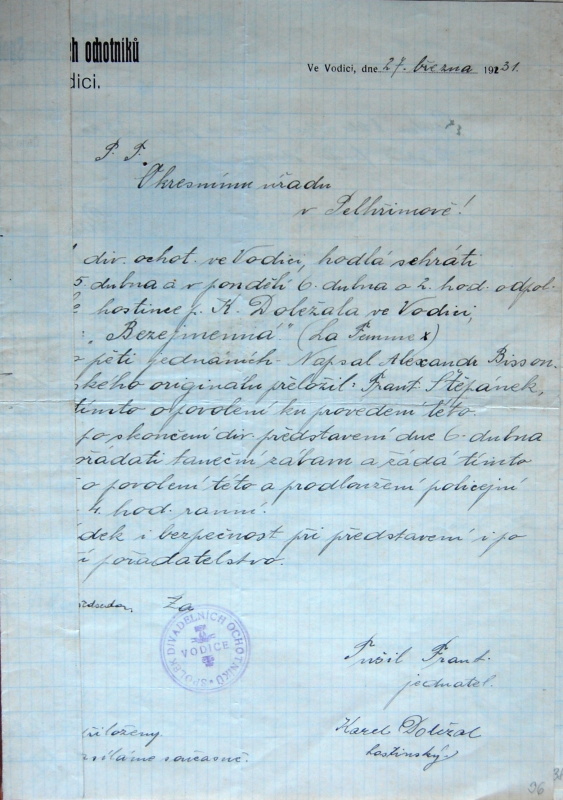 h ochotníků
dici.
Ve Vodici, dne 27. března 1931.
P. T.
Okresnímu úřadu
v Pelhřimově!
div. ochot. ve Vodici, hodlá sehráti
5. dubna a v pondělí 6. dubna o 2. hod. odpol.
hostince p. K. Doležala ve Vodici,
: „Bezejmenná" (La Femme X)
pěti jednáních. Napsal Alexandr Bisson.
ského originálu přeložil: Frant. Štěpánek,
tímto o povolení ku provedení této.
po skončení div. představení dne 6. dubna
řádati taneční zábavu a žádá tímto
o povolení této a prodloužení policejní
4. hod. ranní.
ádek i bezpečnost při představení i po
í pořadatelstvo.
ředseda, Za
SPOLEK DIVADELNÍCH OCHOTNÍKŮ
VODICE
Frant.
jednatel.
Karel Doležal
hostinský
přiloženy.
zasíláme současně.
96